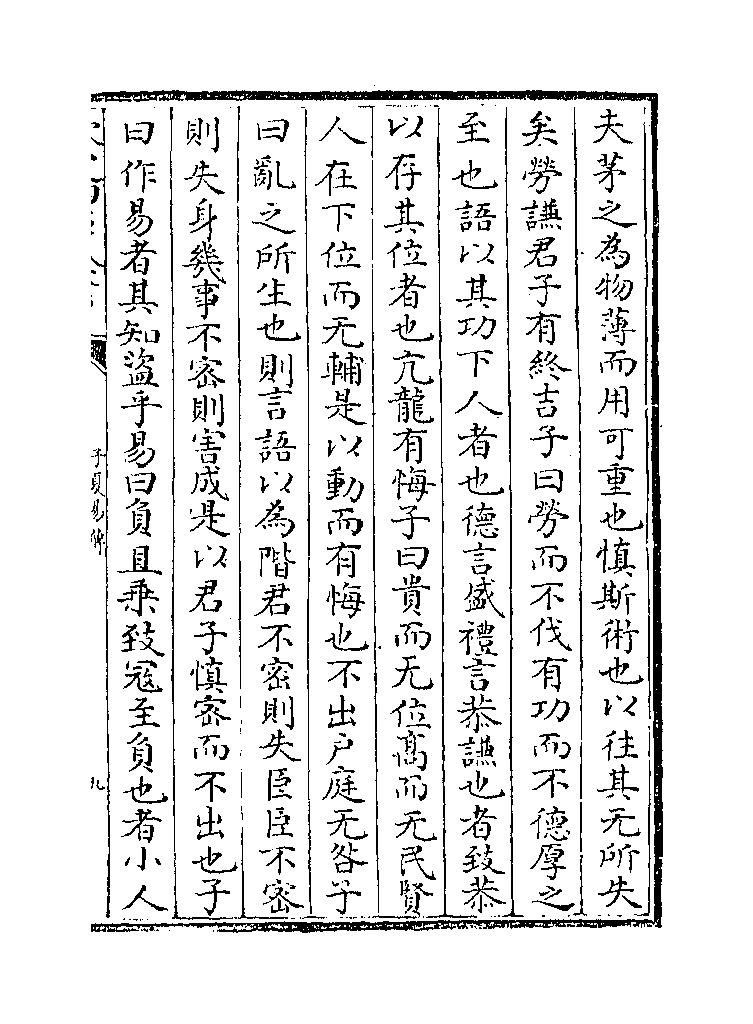 夫茅之為物薄而用可重也慎斯術也以往其无所失
矣勞謙君子有終吉子曰勞而不伐有功而不德厚之
至也語以其功下人者也德言盛禮言恭謙也者致恭
以存其位者也亢龍有悔子曰貴而无位髙而无民賢
人在下位而无輔是以動而有悔也不出户庭无咎子
曰亂之所生也則言語以為階君不密則失臣臣不密
則失身幾事不密則害成是以君子慎密而不出也子
曰作易者其知盜乎易曰負且乗致寇至負也者小人
子夏易傳
九